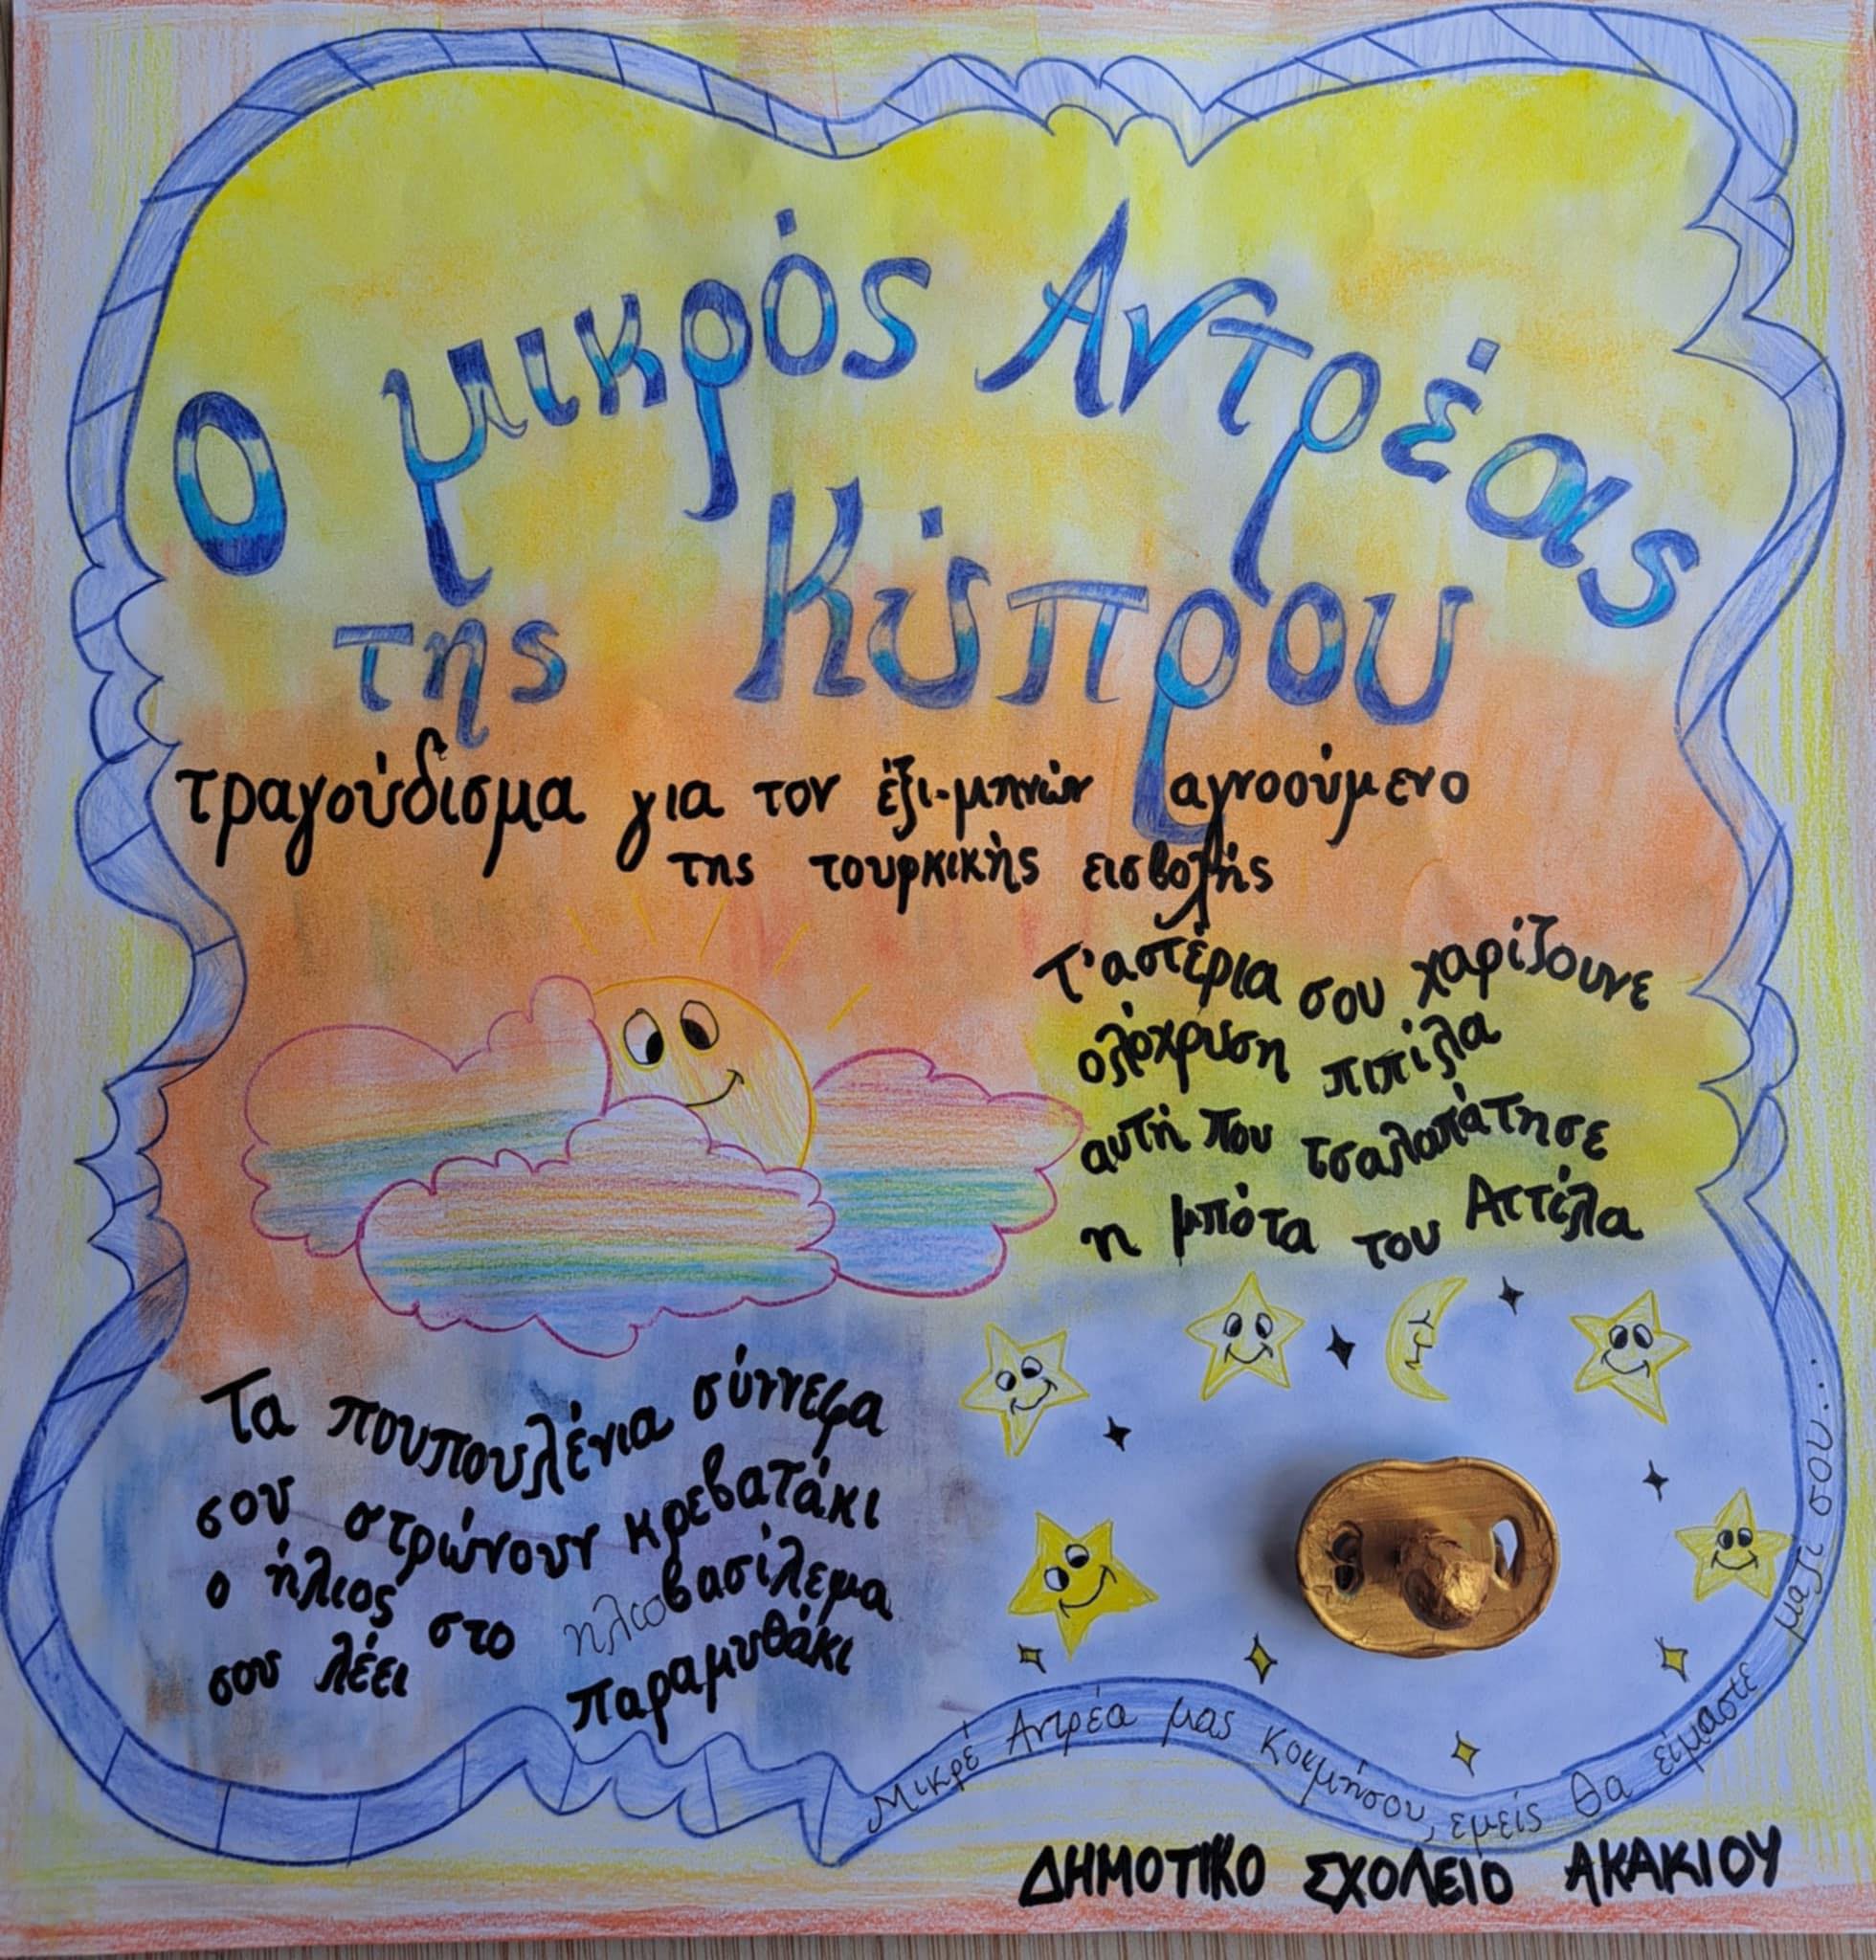 Ο μικρός Αντρέας
της Κύπρου
τραγούδισμα για τον έξι-μηνών αγνοούμενο
της τουρκικής εισβολής
Τ'αστέρια σου χαρίζουνε
ολόχρυση πιπίλα
αυτή που τσαλαπάτησε
η μπότα του Αττίλα
Τα πουπουλένια σύννεφα
σου στρώνουν κρεβατάκι
ο ήλιος στο ηλιοβασίλεμα
σου λέει παραμυθάκι
Μικρέ Αντρέα μας κοιμήσου, εμείς θα είμαστε μαζί σου...
ΔΗΜΟΤΙΚΟ ΣΧΟΛΕΙΟ ΑΚΑΚΙΟΥ